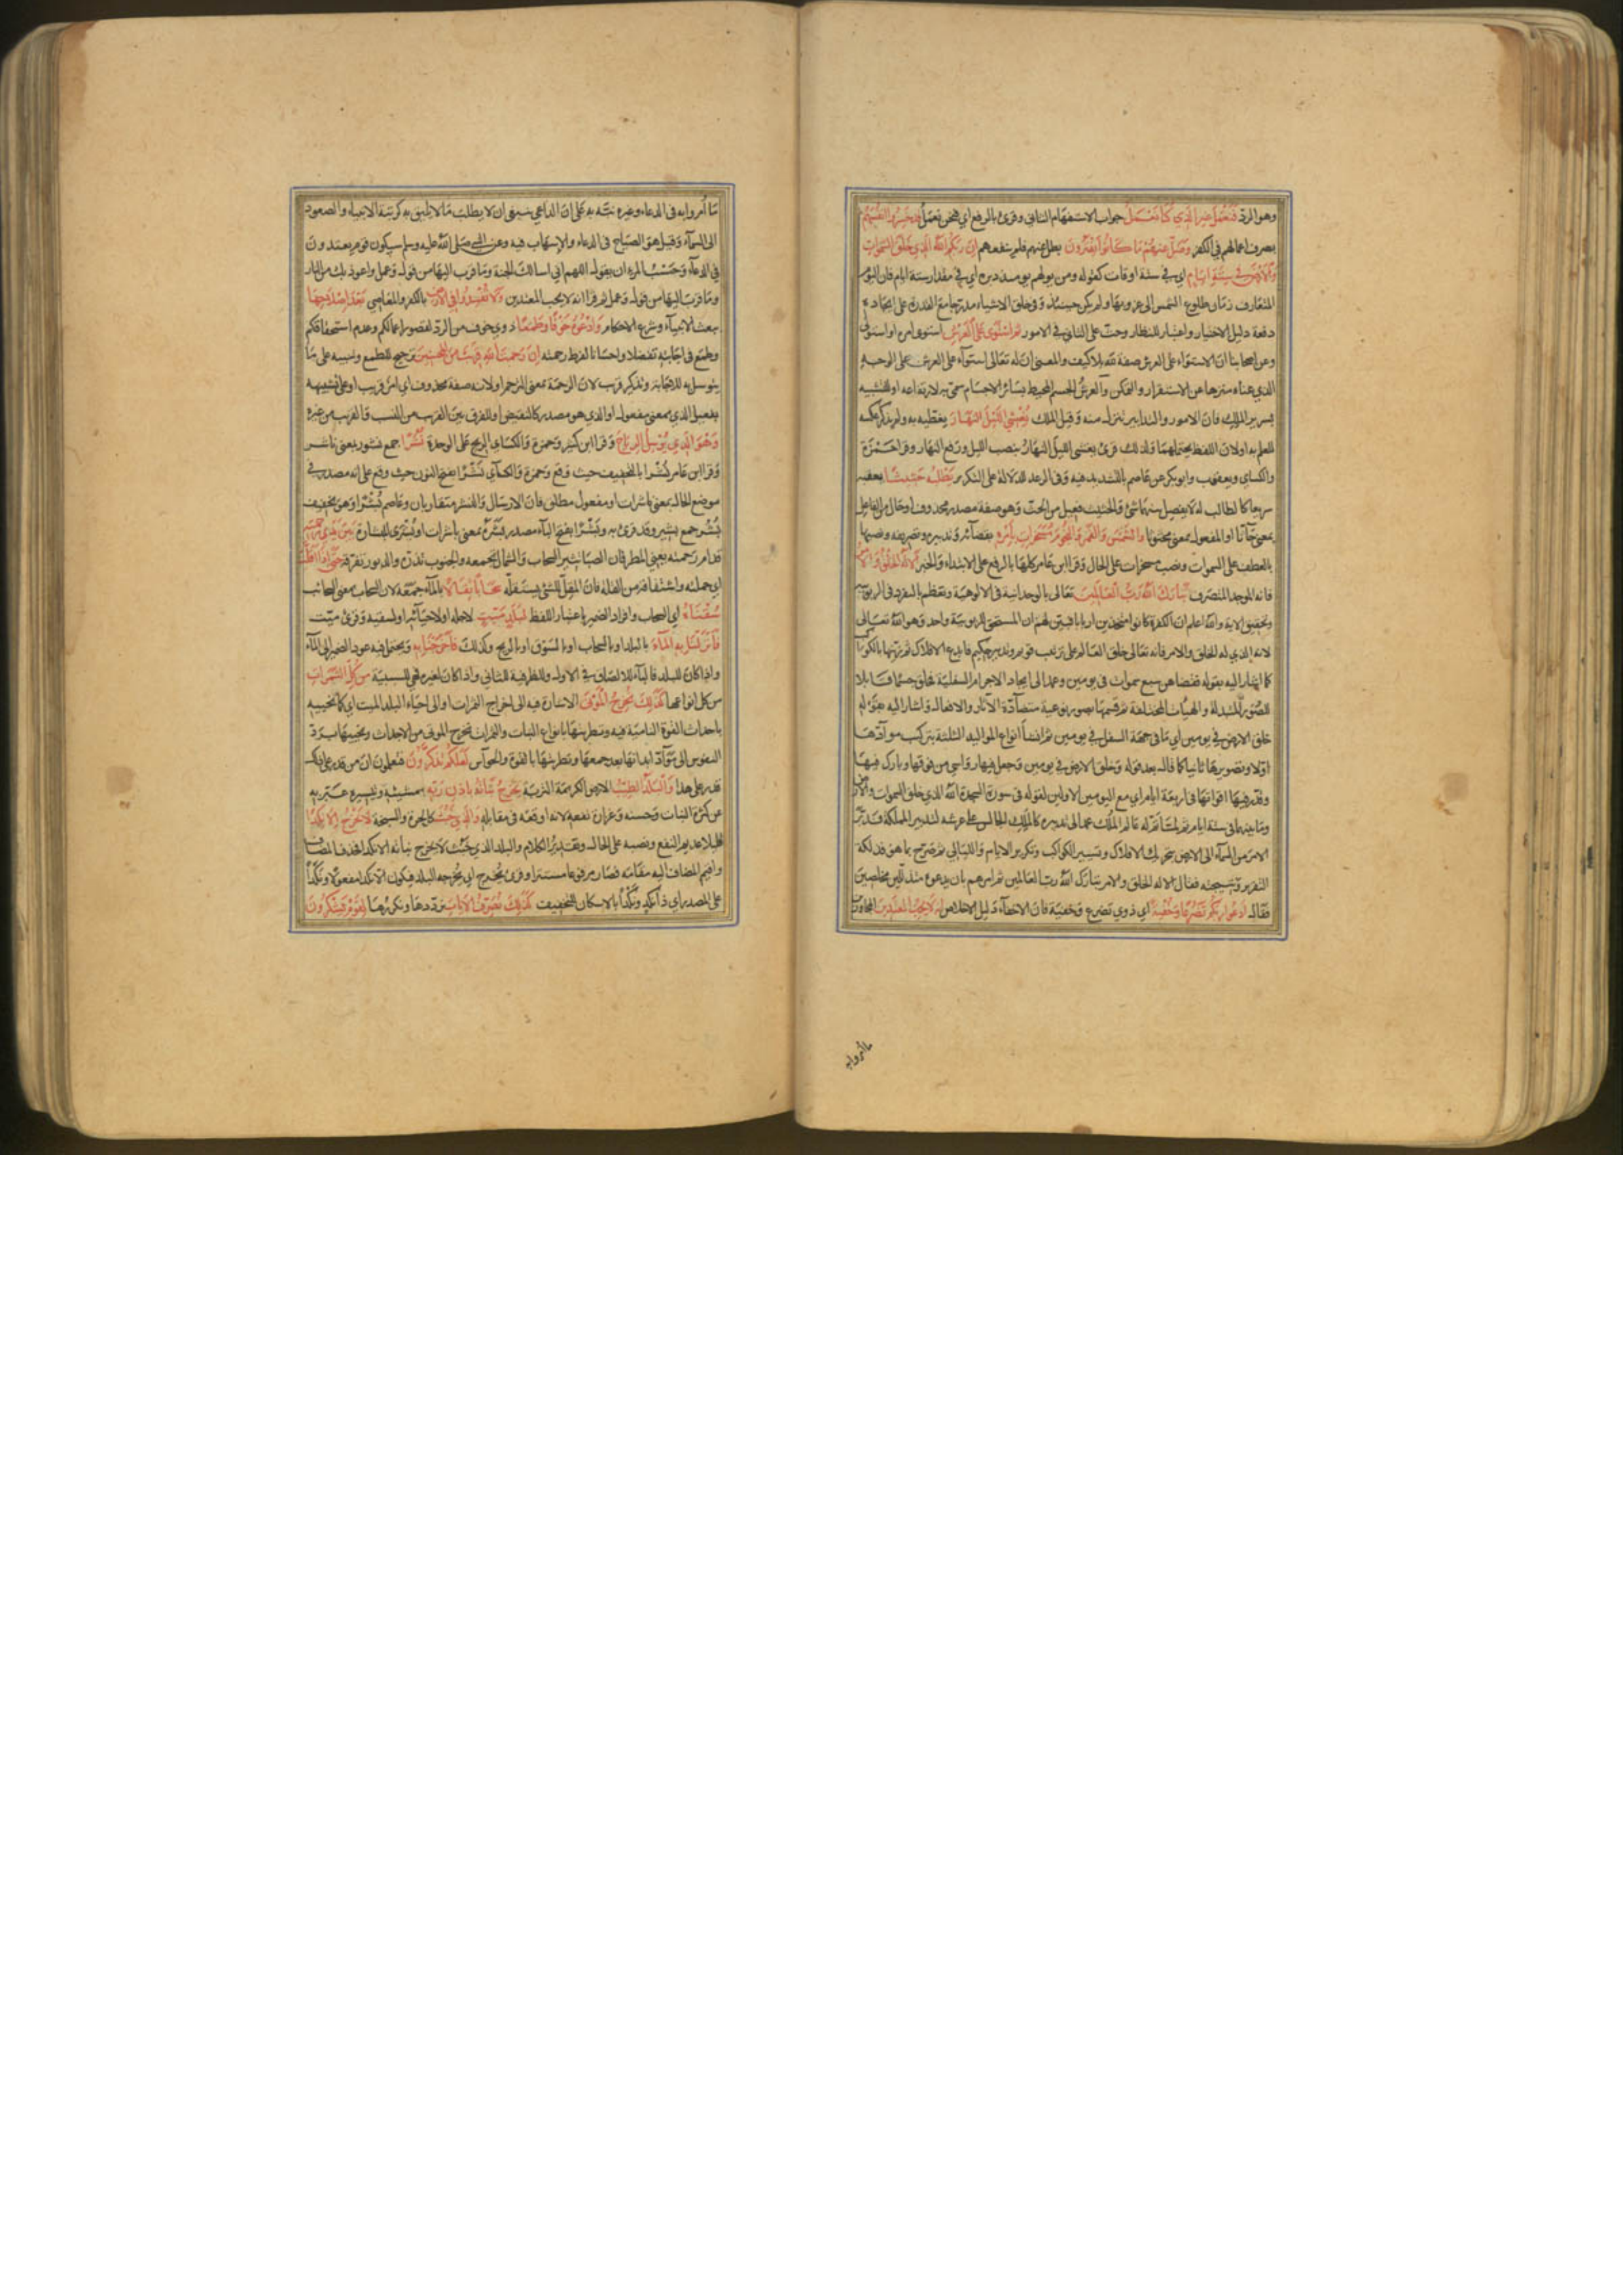 وهو الردّ فَنَعْمَلَ غيرَ الَّذِي كُنَّا نَعْمَلُ جواب الاستفهام الثاني وقرئ بالرفع اي فنحن نعمل قد خَسِرُوا انفُسَهُمْ
بصرف اعمالهم في الكفر وَضَلَّ عنهُمْ مَا كَانُوا يَفْتَرُونَ بطل عنهم فلم ينفعهم إنَّ رَبَّكُمُ اللهُ الَّذِي خَلَقَ السَّمَوَاتِ
وَالاَرْضَ فِي سِتَّةِ ايَّامٍ اي في ستة اوقات كقوله ومن يولهم يومئذ دبره اي في مقدار ستة ايام فان اليوم
المتعارف زمان طلوع الشمس الى غروبها ولم يكن حينئذ وفي خلق الاشياء مدرجا مع القدرة على ايجادها
دفعة دليل الاختيار واعتبار للنظار وحثّ على التأني في الامور ثم اسْتَوَى عَلَى الْعَرْشِ استوى امره او استولى
وعن اصحابنا انّ الاستواء على العرش صفة لله بلا كيف والمعنى ان له تعالى استوآء على العرش على الوجه
الذي عناه منزها عن الاستقرار والتمكن والعرشُ الجسم المحيط بسائر الاجسام سمّي به لارتفاعه او للتشبيه
بسرير الملك فانّ الامور والتدابير تنزل منه وقيل الملك يُغْشِي اللَّيْلَ النَّهَارَ يغطيه به ولم يذكر عكسه
للعلم به او لان اللفظ يحتملهما ولذلك قرئ يغشى الليلَ النهارُ بنصب الليل ورفع النهار وقرا حَمْزَة
والكسائي ويعقوب وابوبكر عن عاصم بالتشديد فيه وفي الرعد للدلالة على التكرير يَطْلُبُهُ حَثِيثًا يعقبه
سريعا كالطالب له لا يفصل بينهما شئ والحثيث فعيل من الحثّ وهو صفة مصدر محذوف او حال من الفاعل
بمعنى حآثّا او المفعول بمعنى محثوثا والشَّمْسَ وَالْقَمَرَ وَالنُّجُومَ مُسَخَّرَاتٍ بِأَمْرِهِ بقضآئه وتدبيره وتصريفه ونصبها
بالعطف على السموات ونصب مسخرات على الحال وقرا ابن عامر كلها بالرفع على الابتداء والخبر أَلاَ لَهُ الخَلْقُ وَالأَمْرُ
فانه الموجد المتصرف تَبَارَكَ اللهُ رَبُّ العَالَمِينَ تعالى بالوحدانية في الالوهية وتعظم بالتفرد في الربوبية
وتحقيق الاية والله اعلم انّ الكفرة كانوا متخذين اربابا فبين لهم ان المستحق للربوبية واحد وهو الله تعالى
لانه الذي له الخلق والامر فانه تعالى خلق العالم على ترتيب قويم وتدبير حكيم فابدع الافلاك ثم زينها بالكواكب
كما اشار اليه بقوله فقضاهن سبع سموات في يومين وعمد الى ايجاد الاجرام السفلية فخلق جسما قابلا
للصُّوَر المتبدلة والهيئات المختلفة ثم قسمها بصور نوعية متضآدّة الآثار والافعال واشار اليه بقوله
خلق الارض في يومين اي مَا في جهة السفل في يومين ثم انشأ انواع المواليد الثلثة بتركيب موآدّها
اوّلا وتصويرها ثانيا كما قال بعد قوله وخلق الارض في يومين وَجعل فيها رواسي من فوقها وبارك فيها
وقدّر فيها اقواتها في اربعة ايام اي مع اليومين الاولين لقوله في سورة السجدة الله الذي خلق السموات والارض
وما بينهما في ستة ايام ثم لمّا تمّ له عالم الملك عمد الى تدبيره كالملك الجالس على عرشه لتدبير المملكة فدبّر
الامر من السمآء الى الارض بتحريك الافلاك وتسيير الكواكب وتكوير الايام والليالي ثم صرّح بما هو فذلكة
التقرير ونتيجته فقال الا له الخلق والامر تبارك الله ربّ العالمين ثم امرهم بان يدعوه متذللين مخلصين
فقال ادْعُوا رَبَّكُمْ تَضَرُّعًا وَخُفْيَةً اي ذوي تضرع وخفية فانّ الاخفآء دليل الاخلاص انّه لا يُحِبُّ المعتَدِينَ المجاوزين
ما امروا به
مَا أُمروا به في الدعاء وغيره نبّه به على انّ الداعي ينبغي ان لا يطلب مَا لا يليق به كرتبة الانبياء والصعود
الى السمآء وقيل هو الصياح في الدعاء والاسهاب فيه وعن النبي صلى الله عليه وسلم سيكون قوم يعتدون
في الدعآء وحَسْبُ المرء ان يقول اللهم اني اسالك الجنة وما قرب اليها من قول وعمل واعوذ بك من النار
وما قرب اليها من قول وعمل ثم قرا انه لا يحب المعتدين وَلا تُفْسِدُوا في الأرضِ بالكفر والمعاصي بَعْدَ إصْلاَحِهَا
ببعث الانبيآء وشرع الاحكام وَادْعُوهُ خَوْفًا وَطَمَعًا ذوي خوف من الردّ لقصور اعمالكم وعدم استحقاقكم
وطمع في اجابته تفضلا واحسانا لفرط رحمته إنّ رَحْمَتَ اللهِ قَرِيبٌ مِنَ المُحْسِنِينَ ترجيح للطمع وتنبيه على مَا
يتوسل به للاجابة وتذكير قريب لانّ الرحمة بمعنى الرحم او لانه صفة محذوف اي امر قريب او على تشبيهه
بفعيل الذي بمعنى مفعول او الذي هو مصدر كالنقيض او للفرق بين القريب من النسب والقريب من غيره
وَهُوَ الَّذِي يُرْسِلُ الرِّيَاحَ وقرا ابن كثير وحمزة والكسائي الريح على الوحدة نُشُرًا جمع نشور بمعنى ناشر
وقرا ابن عامر نُشْرا بالتخفيف حيث وقع وحمزة والكسآئي نَشْرًا بفتح النون حيث وقع على انه مصدر في
موضع الحال بمعنى ناشرات او مفعول مطلق فانّ الارسال والنشر متقاربان وعاصم بُشْرًا وهو تخفيف
بُشُر جمع بشير وقد قرئ به وبَشْرًا بفتح البآء مصدر بَشَرَهُ بمعنى باشرات او للبشارة وبُشْرَى بَيْنَ يَدَيْ رَحْمَتِهِ
قدام رحمته يعني المطر فان الصبا تثير السحاب والشمال تجمعه والجنوب تدرّه والدبور تفرّقه حَتَّى إذَا أَقَلَّتْ
اي حملته واشتقاقه من القلة فانّ المقلّ للشئ يستقلّه سَحَابًا ثِقَالاً بالمآء جمعه لان السحاب بمعنى السحائب
سُقْنَاهُ اي السحاب وافراد الضمير باعتبار اللفظ لِبَلَدٍ مَيِّتٍ لاجله او لاحيآئه او لسقيه وقرئ ميّت
فَأَنْزَلْنَا بِهِ المَآءَ بالبلد او بالسحاب او بالسَّوْق او بالريح وكذلك فَأَخْرَجْنَا بِهِ ويحتمل فيه عود الضمير الى المآء
واذا كان للبلد فالبآء للالصاق في الاول وللظرفية للثاني واذا كان لغيره فهي للسببية مِنْ كُلِّ الثَّمَرَاتِ
من كل انواعها كَذَلِكَ نُخْرِجُ المَوْتَى الاشارة فيه الى اخراج الثمرات او الى احياء البلد الميت اي كما نحييه
باحداث القوة النامية فيه وتطريتها بانواع النبات والثمرات نخرج الموتى من الاجداث ونحييها بردّ
النفوس الى موآدّ ابدانها بعد جمعها وتطريتها بالقوى والحوآس لَعَلَّكُمْ تَذَكَّرُونَ فتعلمون انّ من قدر على ذلك
قدر على هذا وَالْبَلَدُ الطَّيِّبُ الارض الكريمة التربة يَخْرُجُ نَبَاتُهُ بِإِذْنِ رَبِّهِ بمشيئته وتيسيره عبّر به
عن كثرة النبات وحسنه وغزارة نفعه لانه اوقعه في مقابلة وَالَّذِي خَبُثَ كالحرة والسبخة لا يَخْرُجُ إلا نَكِدًا
قليلا عديم النفع ونصبه على الحال وتقدير الكلام والبلد الذي خَبُثَ لا يخرج نباته الا نكدا فحذف المضاف
واقيم المضاف اليه مقامه فصار مرفوعا مستترا وقرئ يُخْرِج اي يُخْرِجه البلد فيكون الا نكدا مفعولا ونَكَدًا
على المصدر اي ذا نكد ونَكْدًا بالاسكان للتخفيف كَذَلِكَ نُصَرِّفُ الآيَاتِ نردّدها ونكررها لِقَوْمٍ يَشْكُرُونَ